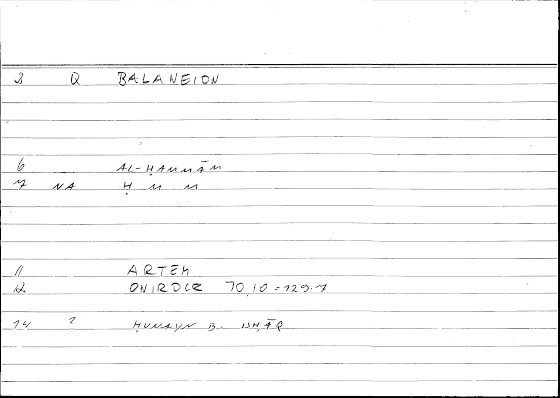 3 Q BALANEION
6 AL-ḤAMMĀM
7 NA Ḥ M M
11 ARTEM
12 ONIROCR 70,10 = 129.7
14 2 ḤUNAYN B. ISḤĀQ